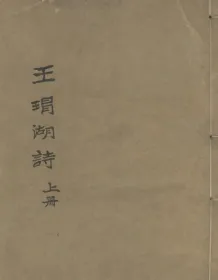 王瑁湖詩
上册